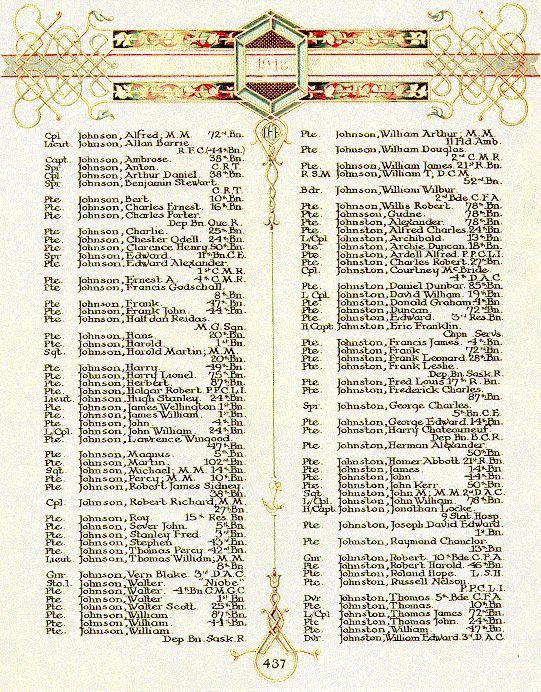 1918
Cpl Johnson, Alfred; M.M. 72nd Bn.
Lieut. Johnson, Allan Barrie
R.F.C. (44th Bn.)
Capt. Johnson, Ambrose. 38th Bn.
Spr Johnson, Anton C.R.T.
Cpl Johnson, Arthur Daniel. 38th Bn.
Spr Johnson, Benjamin Stewart.
C.R.T.
Pte. Johnson, Bert. 10th Bn.
Pte. Johnson, Charles Ernest. 16th Bn.
Pte. Johnson, Charles Porter.
Dep Bn. Que R.
Pte. Johnson, Charlie. 25th Bn.
Pte. Johnson, Chester Odell. 24th Bn.
Pte. Johnson, Clarence Henry. 50th Bn.
Spr Johnson, Edward. 11th Bn. C.E.
Pte. Johnson, Edward Alexander.
1st C.M.R.
Pte. Johnson, Ernest A. 4th C.M.R.
Pte Johnson, Francis Godschall.
8th Bn.
Pte Johnson, Frank. 47th Bn.
Pte. Johnson, Frank John. 44th Bn.
Pte. Johnson, Halfdan Reidas.
M.G. Sqn.
Pte. Johnson, Hans. 20th Bn.
Pte. Johnson, Harold 1st Bn.
Sgt. Johnson, Harold Martin; M.M.
20th Bn.
Pte. Johnson, Harry. 49th Bn.
Pte. Johnson, Harry Lionel. 75th Bn.
Pte. Johnson, Herbert. 87th Bn.
Pte. Johnson, Holgar Robert. P.P.C.L.I.
Lieut. Johnson, Hugh Stanley. 24th Bn.
Pte. Johnson, James Wellington. 1st Bn.
Pte. Johnson, James William. 1st Bn.
Pte. Johnson, John. 4th Bn.
L/Cpl. Johnson, John William. 24th Bn.
Pte. Johnson, Lawrence Wingood.
47th Bn.
Pte. Johnson, Magnus. 5th Bn.
Pte. Johnson, Martin. 102nd Bn.
Sgt. Johnson, Michael; M.M. 14th Bn.
Pte. Johnson, Percy; M.M. 10th Bn.
Pte. Johnson, Robert James Sidney.
38th Bn.
Cpl Johnson, Robert Richard, M.M.
27th Bn.
Pte. Johnson, Roy. 15th Res Bn.
Pte. Johnson, Sever John. 5th Bn.
Pte. Johnson, Stanley Fred. 3rd Bn.
Pte. Johnson, Stephen. 43rd Bn.
Pte. Johnson, Thomas Percy. 42nd Bn.
Lieut Johnson, Thomas William; M.M.
8th Bn
Gnr Johnson, Vern Blake. 3rd D.A.C.
Sto.1. Johnson, Walter. "Niobe"
Pte. Johnson, Walter. 4th Bn. C.M.G.C.
Pte. Johnson, Walter 1st Bn.
Pte. Johnson, Walter Scott. 25th Bn.
Pte. Johnson, William 87th Bn.
Pte. Johnson, William. 44th Bn.
Pte. Johnson, William
Dep Bn. Sask. R.
Pte. Johnson, William Arthur; M.M.
11 Fld. Amb.
Pte Johnson, William Douglas.
2nd C.M.R.
Pte. Johnson, William James. 21st R. Bn.
R.S.M Johnson, William T; D.C.M.
52nd Bn.
Bdr. Johnson, William Wilbur.
2nd Bde. C.F.A.
Pte. Johnson, Willis Robert. 78th Bn.
Pte. Johnsson, Gudne. 78th Bn.
Pte. Johnston, Alexander. 78th Bn.
Pte. Johnston, Alfred Charles. 24th Bn.
L/Cpl. Johnston, Archibald. 13th Bn.
Pte. Johnston, Archie Duncan. 18th Bn.
Pte. Johnston, Ardell Alfred. P.P.C.L.I.
Pte. Johnston, Charles Robert. 27th Bn.
Cpl. Johnston, Courtney McBride
4th D.A.C.
Pte. Johnston, Daniel Dunbar. 85th Bn.
L/Cpl. Johnston, David William. 19th Bn.
Pte. Johnston, Donald Graham. 4th Bn.
Pte. Johnston, Duncan. 72nd Bn.
Pte. Johnston, Edward. 3rd Res. Bn.
H/Capt Johnston, Eric Franklin.
Chpn Servs.
Pte. Johnston, Francis James. 4th Bn.
Pte. Johnston, Frank. 72nd Bn.
Pte. Johnston, Frank Leonard. 28th Bn.
Pte. Johnston, Frank Leslie.
Dep Bn. Sask R.
Pte. Johnston, Fred Louis 17th R. Bn.
Pte. Johnston, Frederick Charles.
87th Bn.
Spr. Johnston, George Charles.
5th Bn. C.E.
Pte. Johnston, George Edward. 14th Bn.
Pte. Johnston, Harry Chateauneuf.
Dep Bn. B.C.R.
Pte. Johnston, Herman Alexander.
50th Bn.
Pte. Johnston, Homer Abbott. 21st R. Bn
Pte. Johnston, James. 14th Bn.
Pte. Johnston, John. 44th Bn.
Pte. Johnston, John Kerr 50th Bn.
Sgt. Johnston, John M; M.M. 2nd D.A.C
L/Cpl. Johnston, John William. 78th Bn.
H/Capt Johnston, Jonathan Locke.
9 Stat. Hosp.
Pte. Johnston, Joseph David Edward.
1st Bn.
Pte. Johnston, Raymond Chanclor.
13th Bn
Gnr Johnston, Robert. 10th Bde. C.F.A.
Pte. Johnston, Robert Harold. 46th Bn.
Pte. Johnston, Roland Hope. L.S.H.
Pte. Johnston, Russell Nelson.
P.P.C.L.I.
Dvr Johnston, Thomas. 5th Bde. C.F.A.
Pte. Johnston, Thomas. 10th Bn.
L/Cpl. Johnston, Thomas James. 72nd Bn.
Pte. Johnston, Thomas John. 24th Bn.
Pte. Johnston, William. 47th Bn.
Dvr Johnston, William Edward. 3rd D.A.C.
437